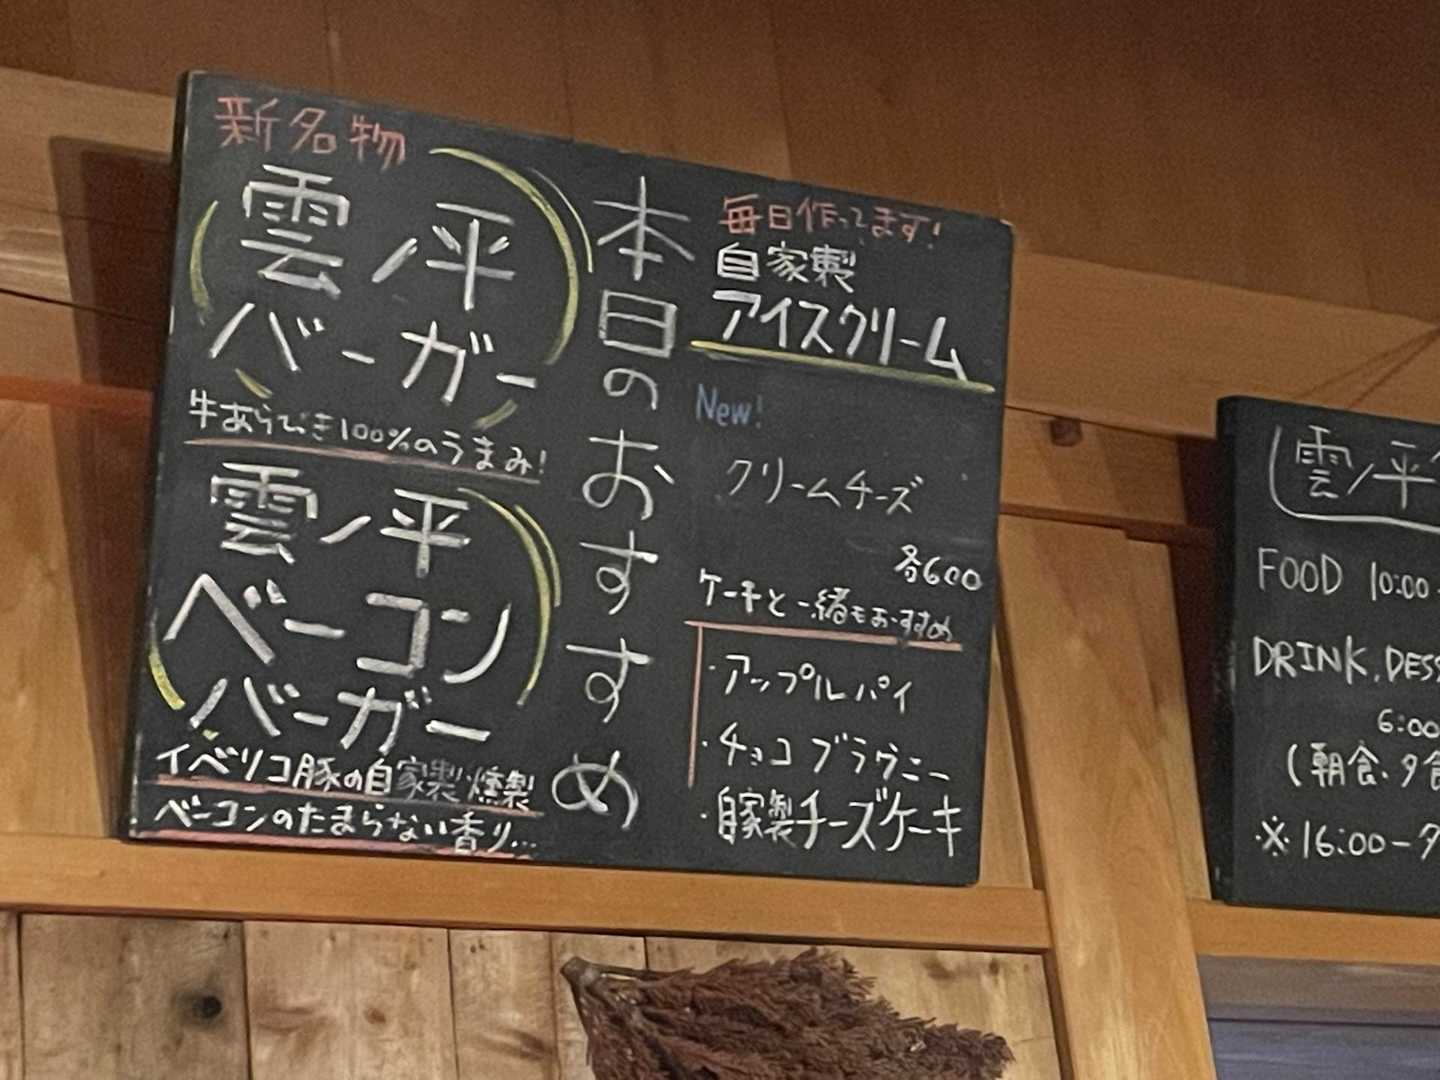 新名物
雲ノ平
バーガー
牛あらびき100%のうまみ!
雲ノ平
ベーコン
バーガー
イベリコ豚の自家製燻製
ベーコンのたまらない香り…
本日のおすすめ
毎日作ってます!
自家製
アイスクリーム
New!
クリームチーズ
各600
ケーキと一緒もおすすめ
・アップルパイ
・チョコブラウニー
・自家製チーズケーキ
雲ノ平
FOOD 10:00
DRINK, DESS
6:00
(朝食、夕食
※16:00-